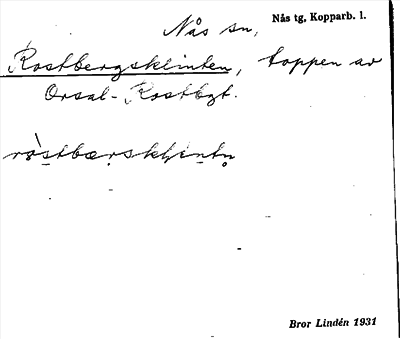 Nås sn, Nås tg, Kopparb. l.
Rostbergsklinten, toppen av
Orsal-Rostbgt.
ròstbærsklintn̥
Bror Lindén 1931